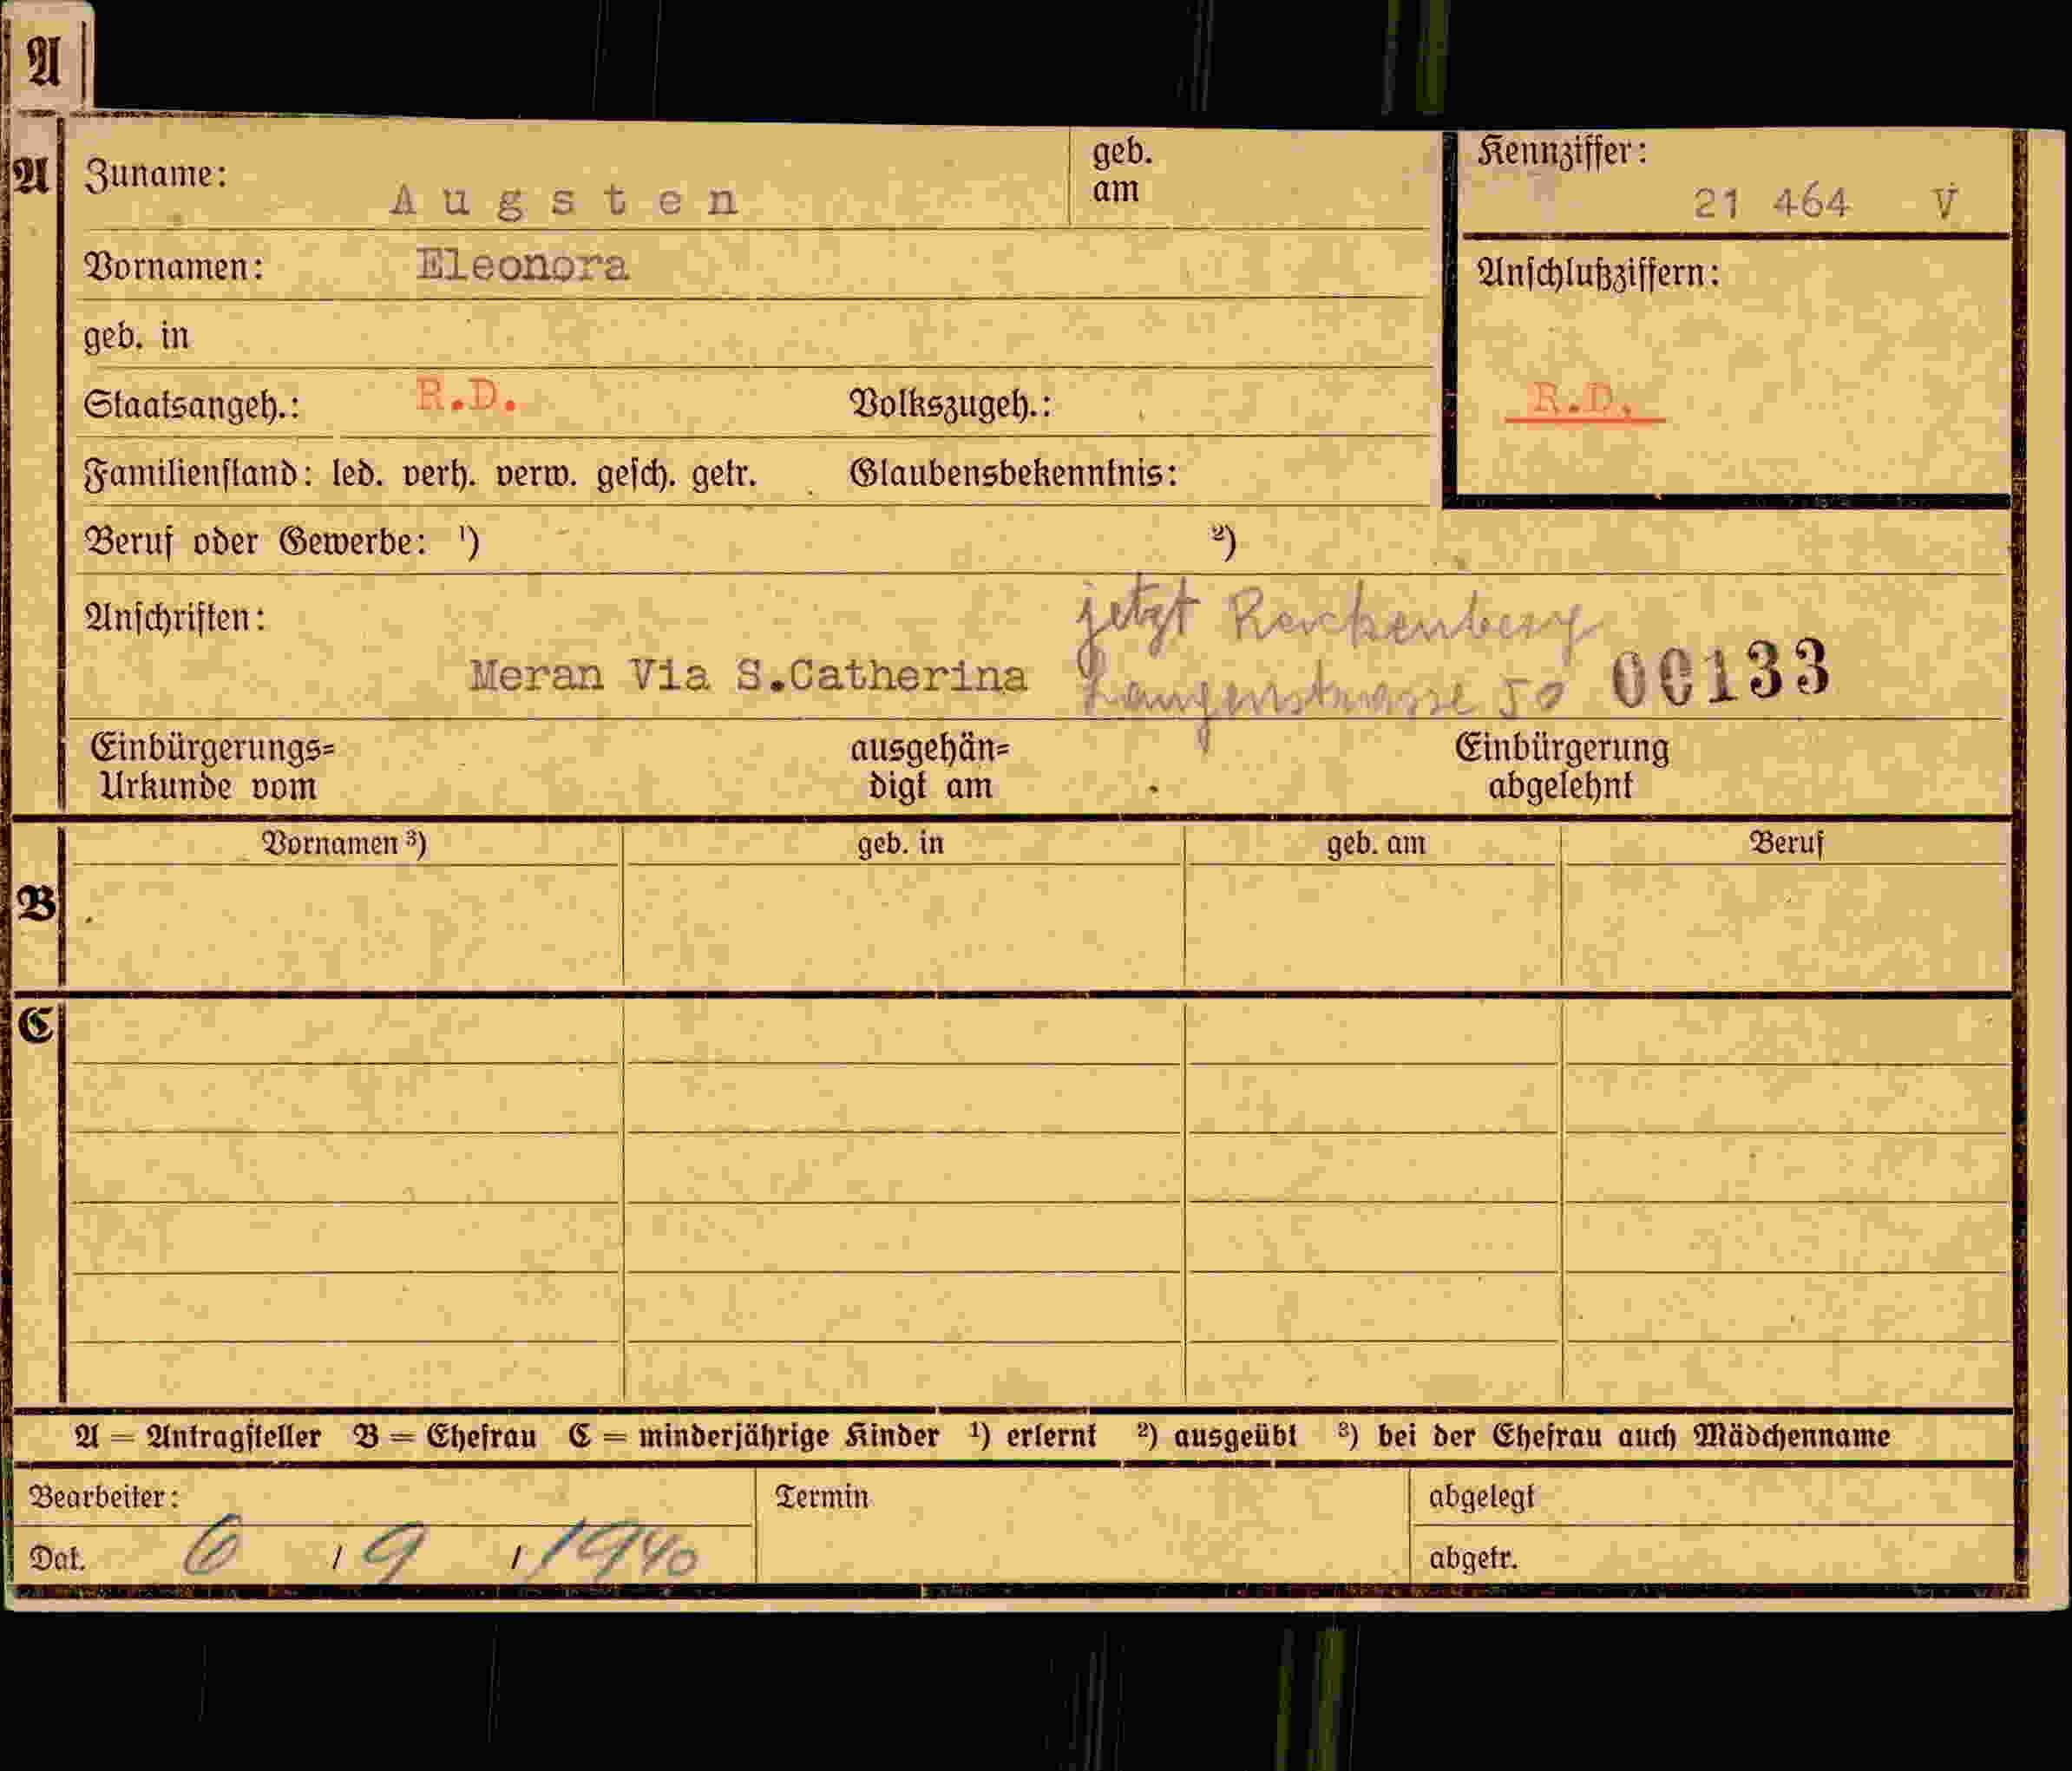 A
A
Zuname: Augsten
geb. am
Kennziffer: 21 464 V
Vornamen: Eleonora
Anschlußziffern:
R.D.
geb. in
Staatsangeh.: R.D. Volkszugeh.:
Familienstand: led. verh. verw. gesch. getr. Glaubensbekenntnis:
Beruf oder Gewerbe: ¹) ²)
Anschriften: jetzt Reichenberg
Meran Via S.Catherina Langenstrasse 50 00133
Einbürgerungs= ausgehän= Einbürgerung
Urkunde vom digt am abgelehnt
B
Vornamen ³) geb. in geb. am Beruf
C
A = Antragsteller B = Ehefrau C = minderjährige Kinder ¹) erlernt ²) ausgeübt ³) bei der Ehefrau auch Mädchenname
Bearbeiter: Termin abgelegt
Dat. 6 / 9 / 1940 abgetr.